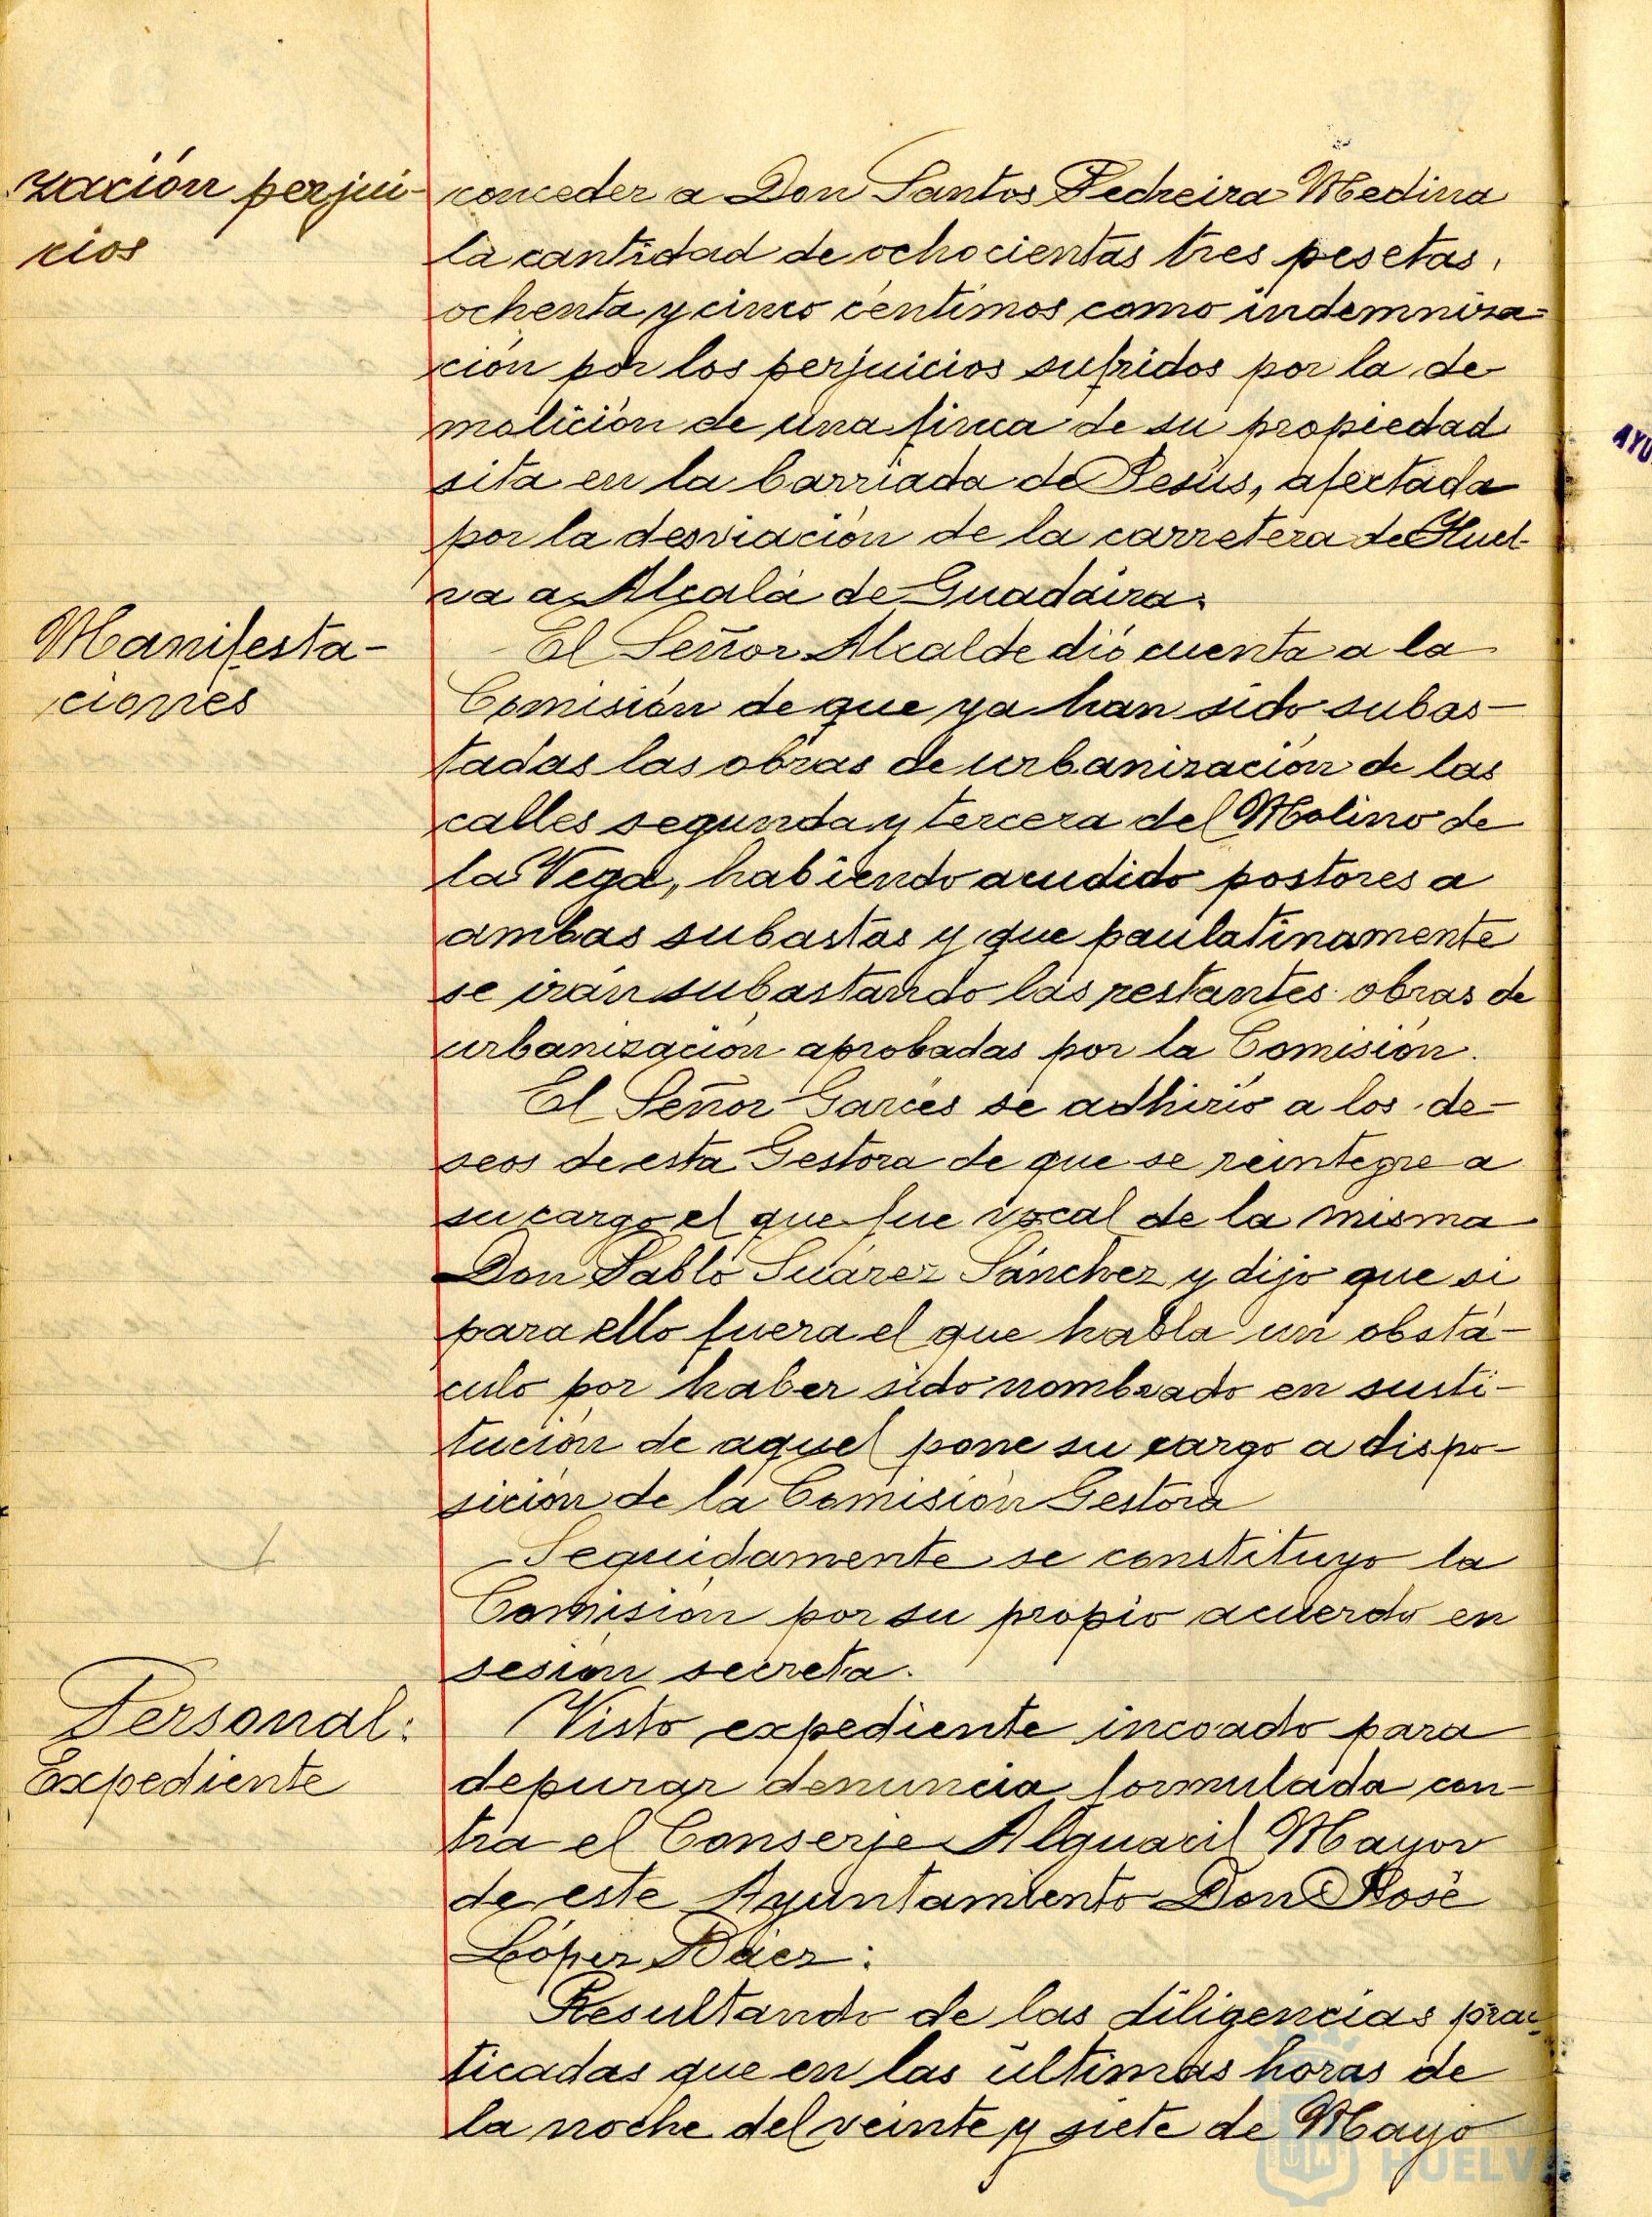 zación perjui-
cios
conceder a Don Santos Pedreira Medina
la cantidad de ochocientas tres pesetas,
ochenta y cinco céntimos como indemniza=
ción por los perjuicios sufridos por la de
molición de una finca de su propiedad
sita en la barriada de Jesús, afectada
por la desviación de la carretera de Huel-
va a Alcalá de Guadaira.
Manifesta-
ciones
El Señor Alcalde dió cuenta a la
Comisión de que ya han sido subas-
tadas las obras de urbanización de las
calles segunda y tercera del Molino de
la Vega, habiendo acudido postores a
ambas subastas y que paulatinamente
se irán subastando las restantes obras de
urbanización aprobadas por la Comisión.
El Señor Garcés se adhirió a los de-
seos de esta Gestora de que se reintegre a
su cargo el que fue vocal de la misma
Don Pablo Suárez Sánchez y dijo que si
para ello fuera el que habla un obstá-
culo por haber sido nombrado en susti-
tución de aquel pone su cargo a dispo-
sición de la Comisión Gestora
Seguidamente se constituyo la
Comisión por su propio acuerdo en
sesión secreta.
Personal:
Expediente
Visto expediente incoado para
depurar denuncia formulada con-
tra el Conserje Alguacil Mayor
de este Ayuntamiento Don José
López Báez:
Resultando de las diligencias prac-
ticadas que en las últimas horas de
la noche del veinte y siete de Mayo
AYU
HUELVA